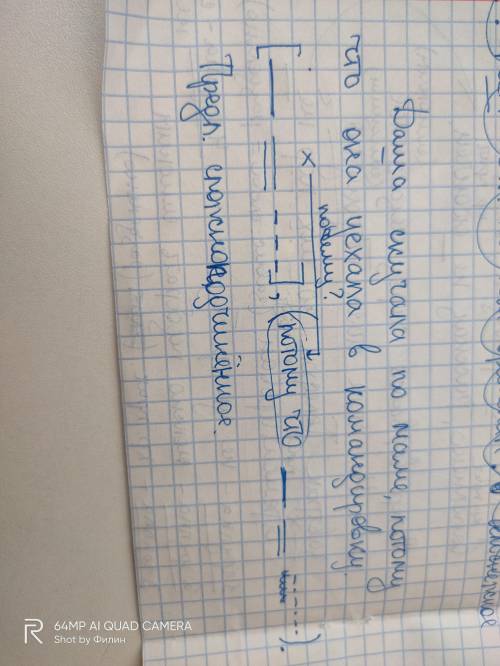 Даша скучала по маме, потому
что она уехала в командировку.
почему?
х
[— = - - -], (потому что — = ......).
Предл. сложноподчинённое.
64MP AI QUAD CAMERA
Shot by Филин